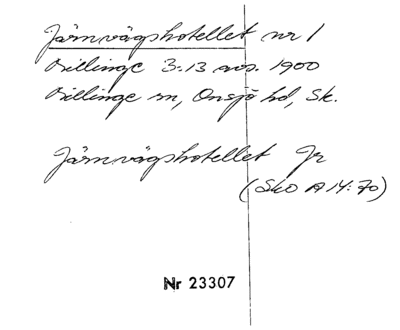 Järnvägshotellet nr 1
Billinge 3:13 avs. 1900
Billinge sn, Onsjö hd, Sk.
Järnvägshotellet Jr
(Sko A 14:70)
Nr 23307